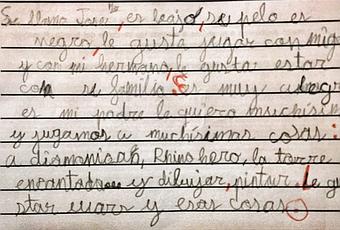 Se llama Jose, es bajo, su pelo es
negro, le gusta jugar conmigo
y con mi hermano, le gusta estar
con su familia. es muy
es mi padre le quiero muchísimo
y jugamos a muchísimas cosas:
a Rhino hero, la torre
encantada y dibujar, pintar. Le gu
star y esas cosas.